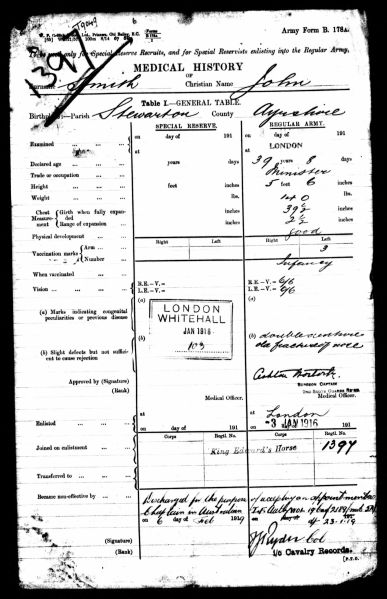 1397
Army Form B. 178A.
To be used only for Special Reserve Recruits, and for Special Reservists enlisting into the Regular Army.
MEDICAL HISTORY
OF
Surname Smith Christian Name John
Table I.—GENERAL TABLE.
Birthplace:—Parish Stewarton County Ayrshire
SPECIAL RESERVE. REGULAR ARMY.
Examined on day of 191 on day of 191
at at LONDON
Declared age years days 39 years 8 days
Trade or occupation Minister
Height feet inches 5 feet 6 inches
Weight lbs. 140 lbs.
Chest Measurement Girth when fully expanded inches 39½ inches
Range of expansion inches 2½ inches
Physical development good
Vaccination marks Arm Right Left Right Left
Number 3
When vaccinated Infancy
Vision R.E.—V.= R.E.—V.= 6/6
L.E.—V.= L.E.—V.= 6/6
(a) Marks indicating congenital peculiarities or previous disease (a) (a)
LONDON
WHITEHALL
JAN 1916
103
(b) Slight defects but not sufficient to cause rejection (b) (b)
old fracture of nose
Approved by (Signature)
(Rank) SURGEON CAPTAIN
Medical Officer. Medical Officer.
Enlisted at at London
on day of 191 on 3 JAN 1916
Joined on enlistment Corps Regtl. No. Corps Regtl. No.
King Edward's Horse 1397
Transferred to
Became non-effective by Discharged for the purpose of accepting an appointment as
Chaplain in Australian
on 6 day of Feb 1919
23-1-19
(Signature) Ryder Col
(Rank) i/c Cavalry Records.
[P.T.O.